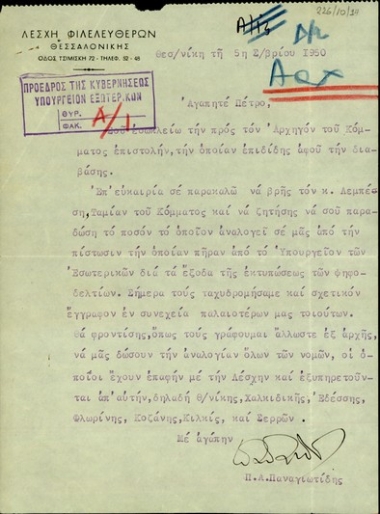 226/10/29
ΛΕΣΧΗ ΦΙΛΕΛΕΥΘΕΡΩΝ
ΘΕΣΣΑΛΟΝΙΚΗΣ
ΟΔΟΣ ΤΣΙΜΙΣΚΗ 72 - ΤΗΛΕΦ. 52-48
Θεσ/νίκη τῇ 5ῃ Σ/βρίου 1950
ΠΡΟΕΔΡΟΣ ΤΗΣ ΚΥΒΕΡΝΗΣΕΩΣ
ΥΠΟΥΡΓΕΙΟΝ ΕΞΩΤΕΡΙΚΩΝ
ΘΥΡ.
ΦΑΚ.
Α/1
Ἀγαπητέ Πέτρο,
σοῦ ἐσωκλείω τήν πρός τόν Ἀρχηγόν τοῦ Κόμ-
ματος ἐπιστολήν, τήν ὁποίαν ἐπιδίδης ἀφοῦ τήν δια-
βάσης.
Ἐπ' εὐκαιρία σέ παρακαλῶ νά βρῆς τόν κ. Λεμπέ-
ση, Ταμίαν τοῦ Κόμματος καί νά ζητήσης νά σοῦ παρα-
δώση τό ποσόν τό ὁποῖον ἀναλογεῖ σέ μᾶς ἀπό τήν
πίστωσιν τήν ὁποίαν πῆραν ἀπό τό Ὑπουργεῖον τῶν
Ἐσωτερικῶν διά τά ἔξοδα τῆς ἐκτυπώσεως τῶν ψηφο-
δελτίων. Σήμερα τούς ταχυδρομήσαμε καί σχετικόν
ἔγγραφον ἐν συνεχεία παλαιοτέρων μας τοιούτων.
θά φροντίσης, ὅπως τούς γράφουμαι ἄλλωστε ἐξ ἀρχῆς,
νά μᾶς δώσουν τήν ἀναλογίαν ὅλων τῶν νομῶν, οἱ ὁ-
ποῖοι ἔχουν ἐπαφήν μέ τήν Λέσχην καί ἐξυπηρετοῦνται
ἀπ' αὐτήν, δηλαδή Θ/νίκης, Χαλκιδικῆς, Ἐδέσσης,
Φλωρίνης, Κοζάνης, Κιλκίς, καί Σερρῶν.
Μέ ἀγάπην
Π.Α.Παναγιωτίδης